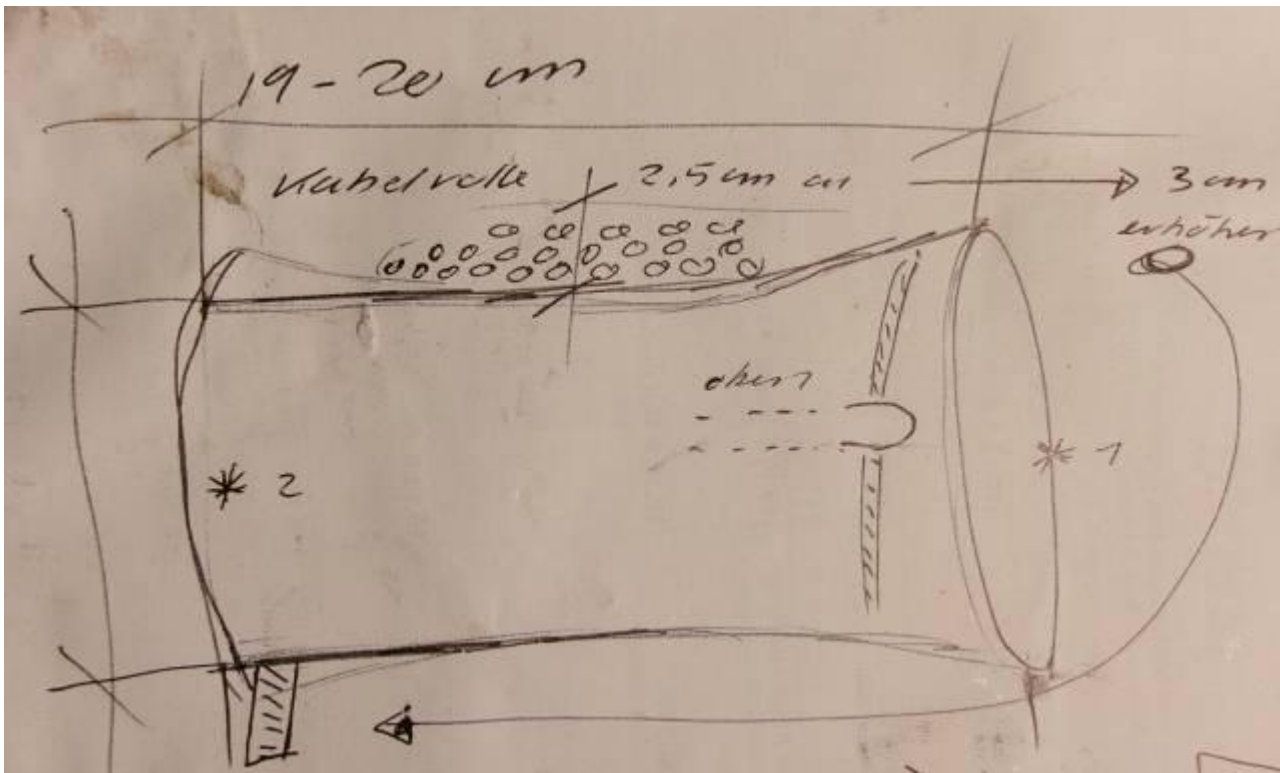 19-20 cm
Kabelrolle 2,5 cm an 3 cm
erhöhen
oben
* 2
* 1